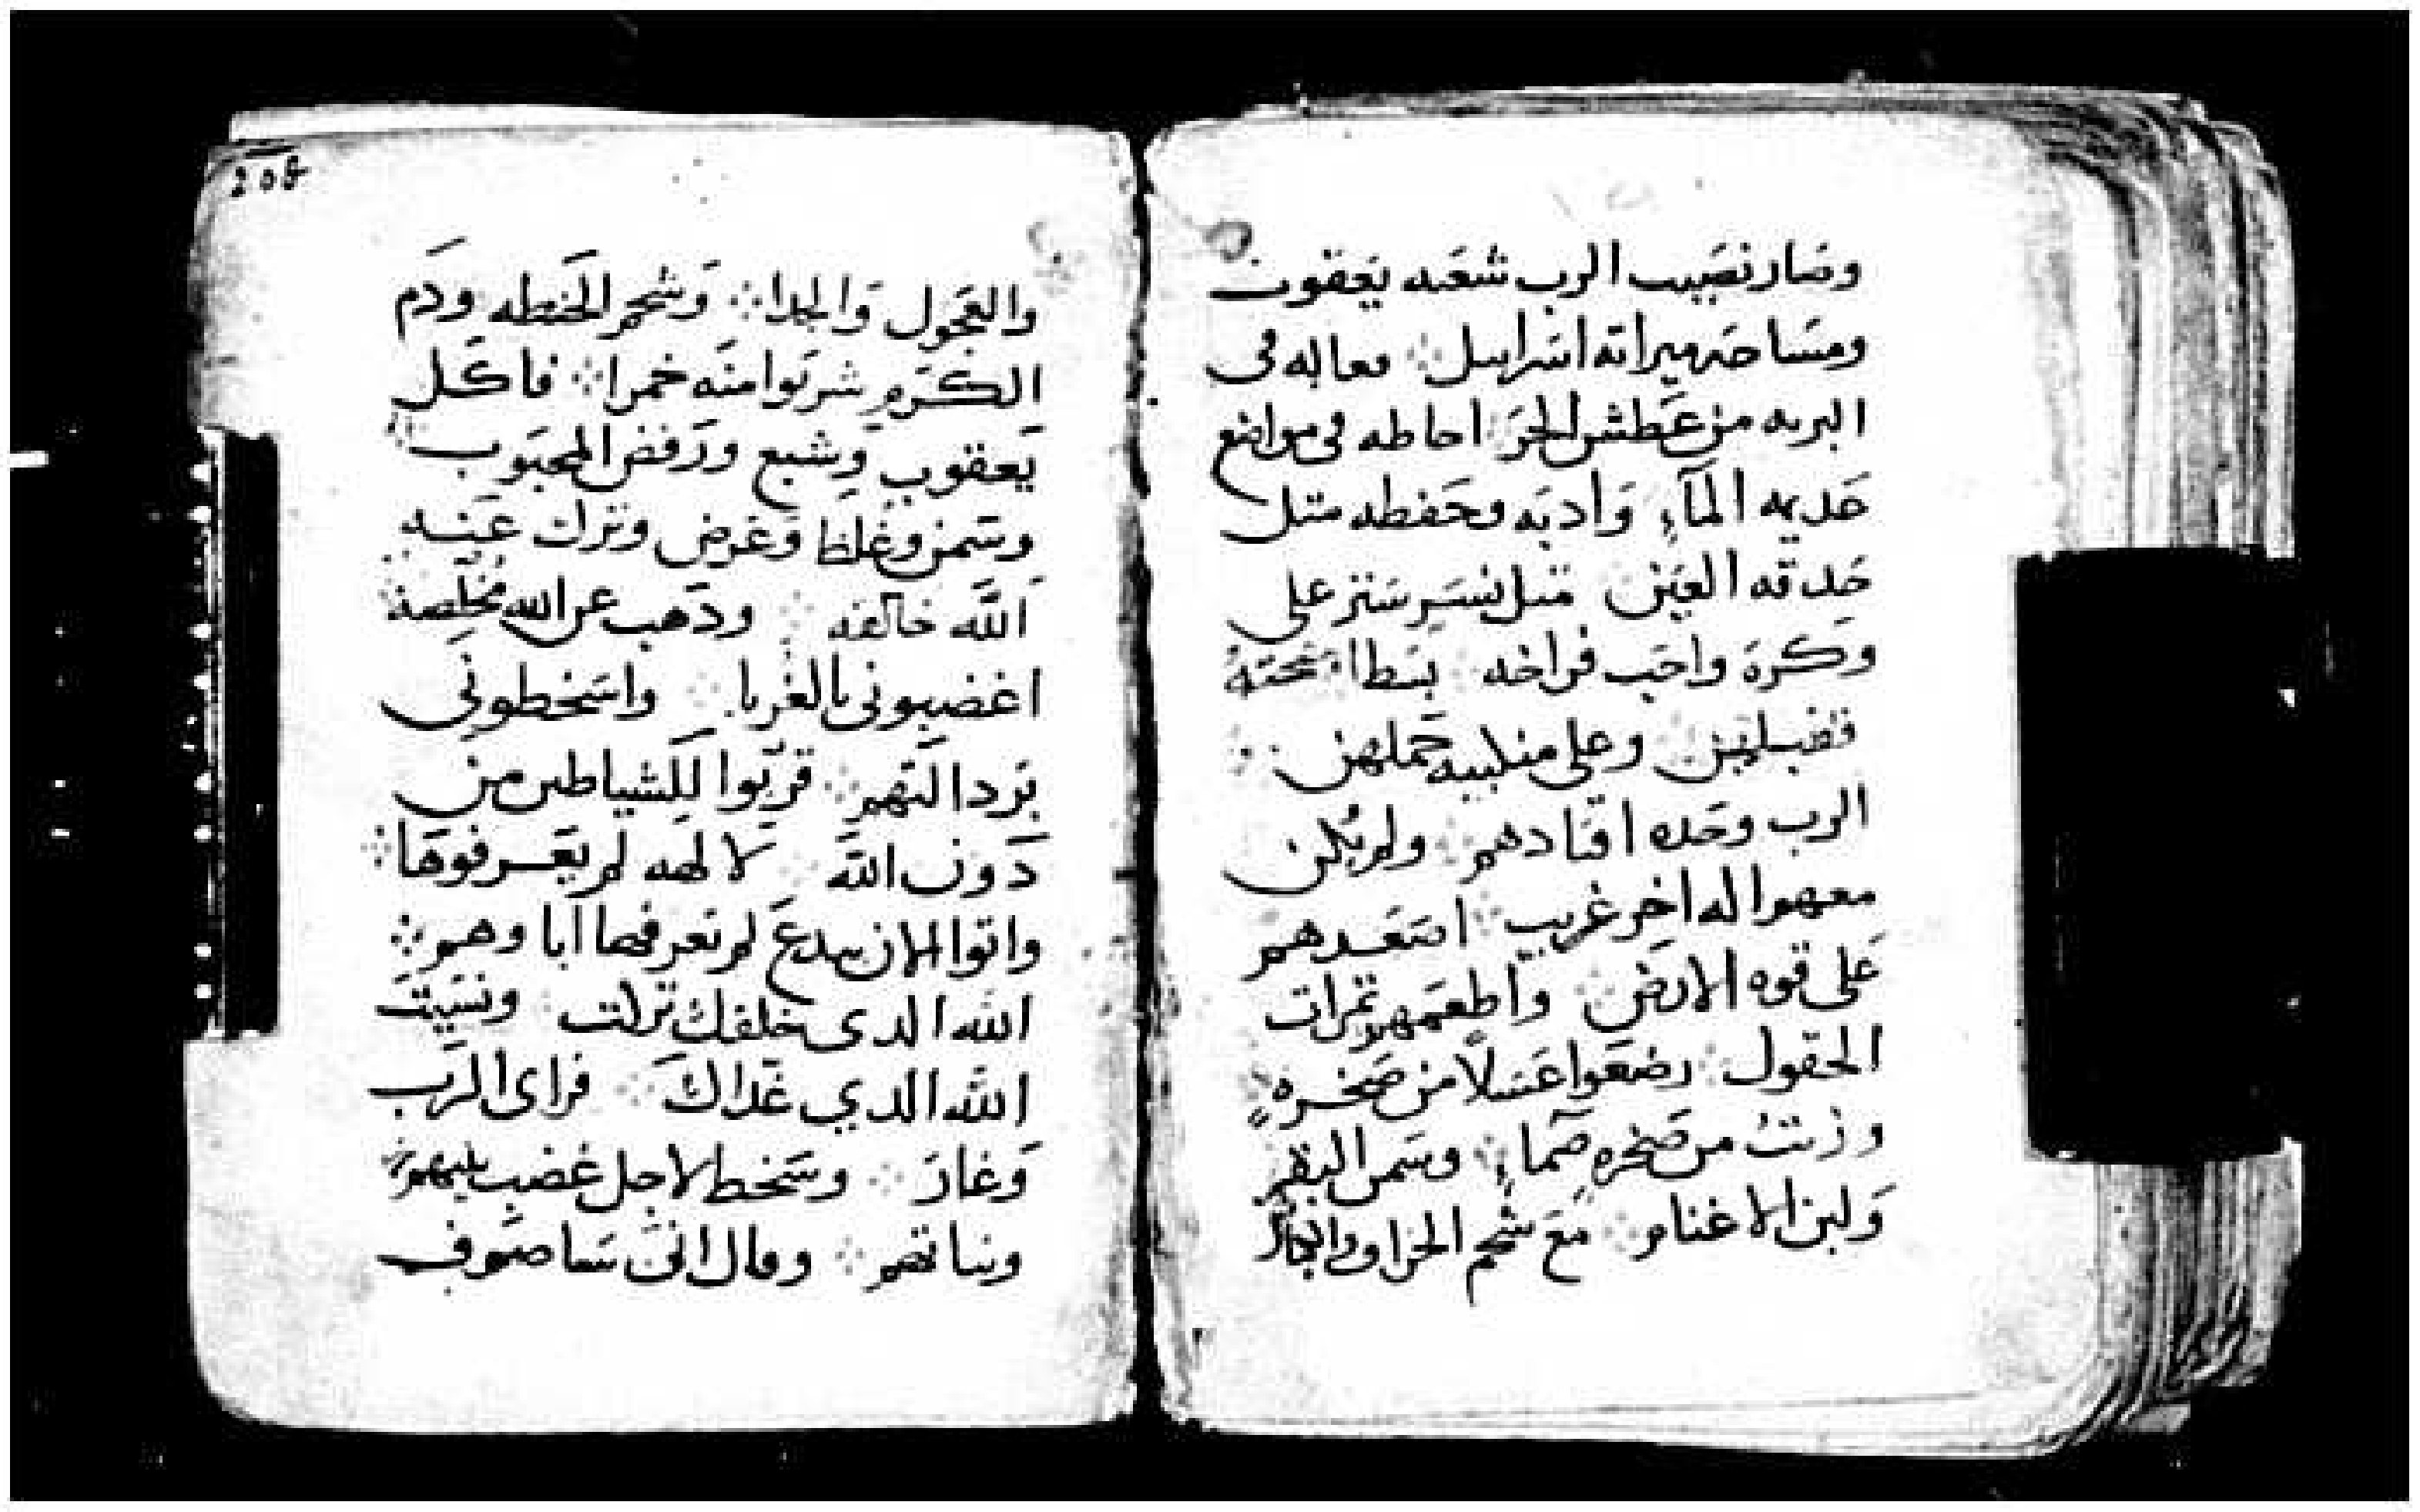 وصار نصيب الرب شعبه يعقوب
ومساحه ميراثه اسراييل ∴ معاله فى
البريه من عطش الحر ∴ احاطه فى مواضع
عديمه المآء ∴ وادبه وحفطه متل
حدقه العين ∴ متل نسر ستر على
وكره واحب فراخه ∴ بسط اجنحته
فقبلهن ∴ وعلى منكبيه حملهن ∴
الرب وحده اقتادهم ∴ ولم يكن
معهم اله اخر غريب ∴ اصعدهم
على قوه الارض ∴ واطعمهم ثمرات
الحقول ∴ رضعوا عسلاً من صخره
وزيتُ من صخره صماء ∴ وسمن البقر
ولبن الاغنام ∴ مع شحم الخراف والكباش
208
والعجول والجدا ∴ وشحم الحنطه ودم
الكرم شربوا منه خمرا ∴ فاكل
يعقوب وشبع ورفض المحبوب ∴
وسمن وغلظ وعرض وترك عنه
الله خالقه ∴ ودهب عن الله مخلصه ∴
اغضبونى بالغربا ∴ واسخطونى
برد التهم ∴ قربوا للشياطين من
دون الله ∴ لالهه لم يعرفوها ∴
واتوا الان ببدع لم تعرفها اباوهم ∴
الله الدى خلفك تركت ∴ ونسيت
الله الدي غداك ∴ فراى الرب
وغار ∴ وسخط لاجل غضب بنيهم ∴
وبناتهم ∴ وقال انى ساصرف